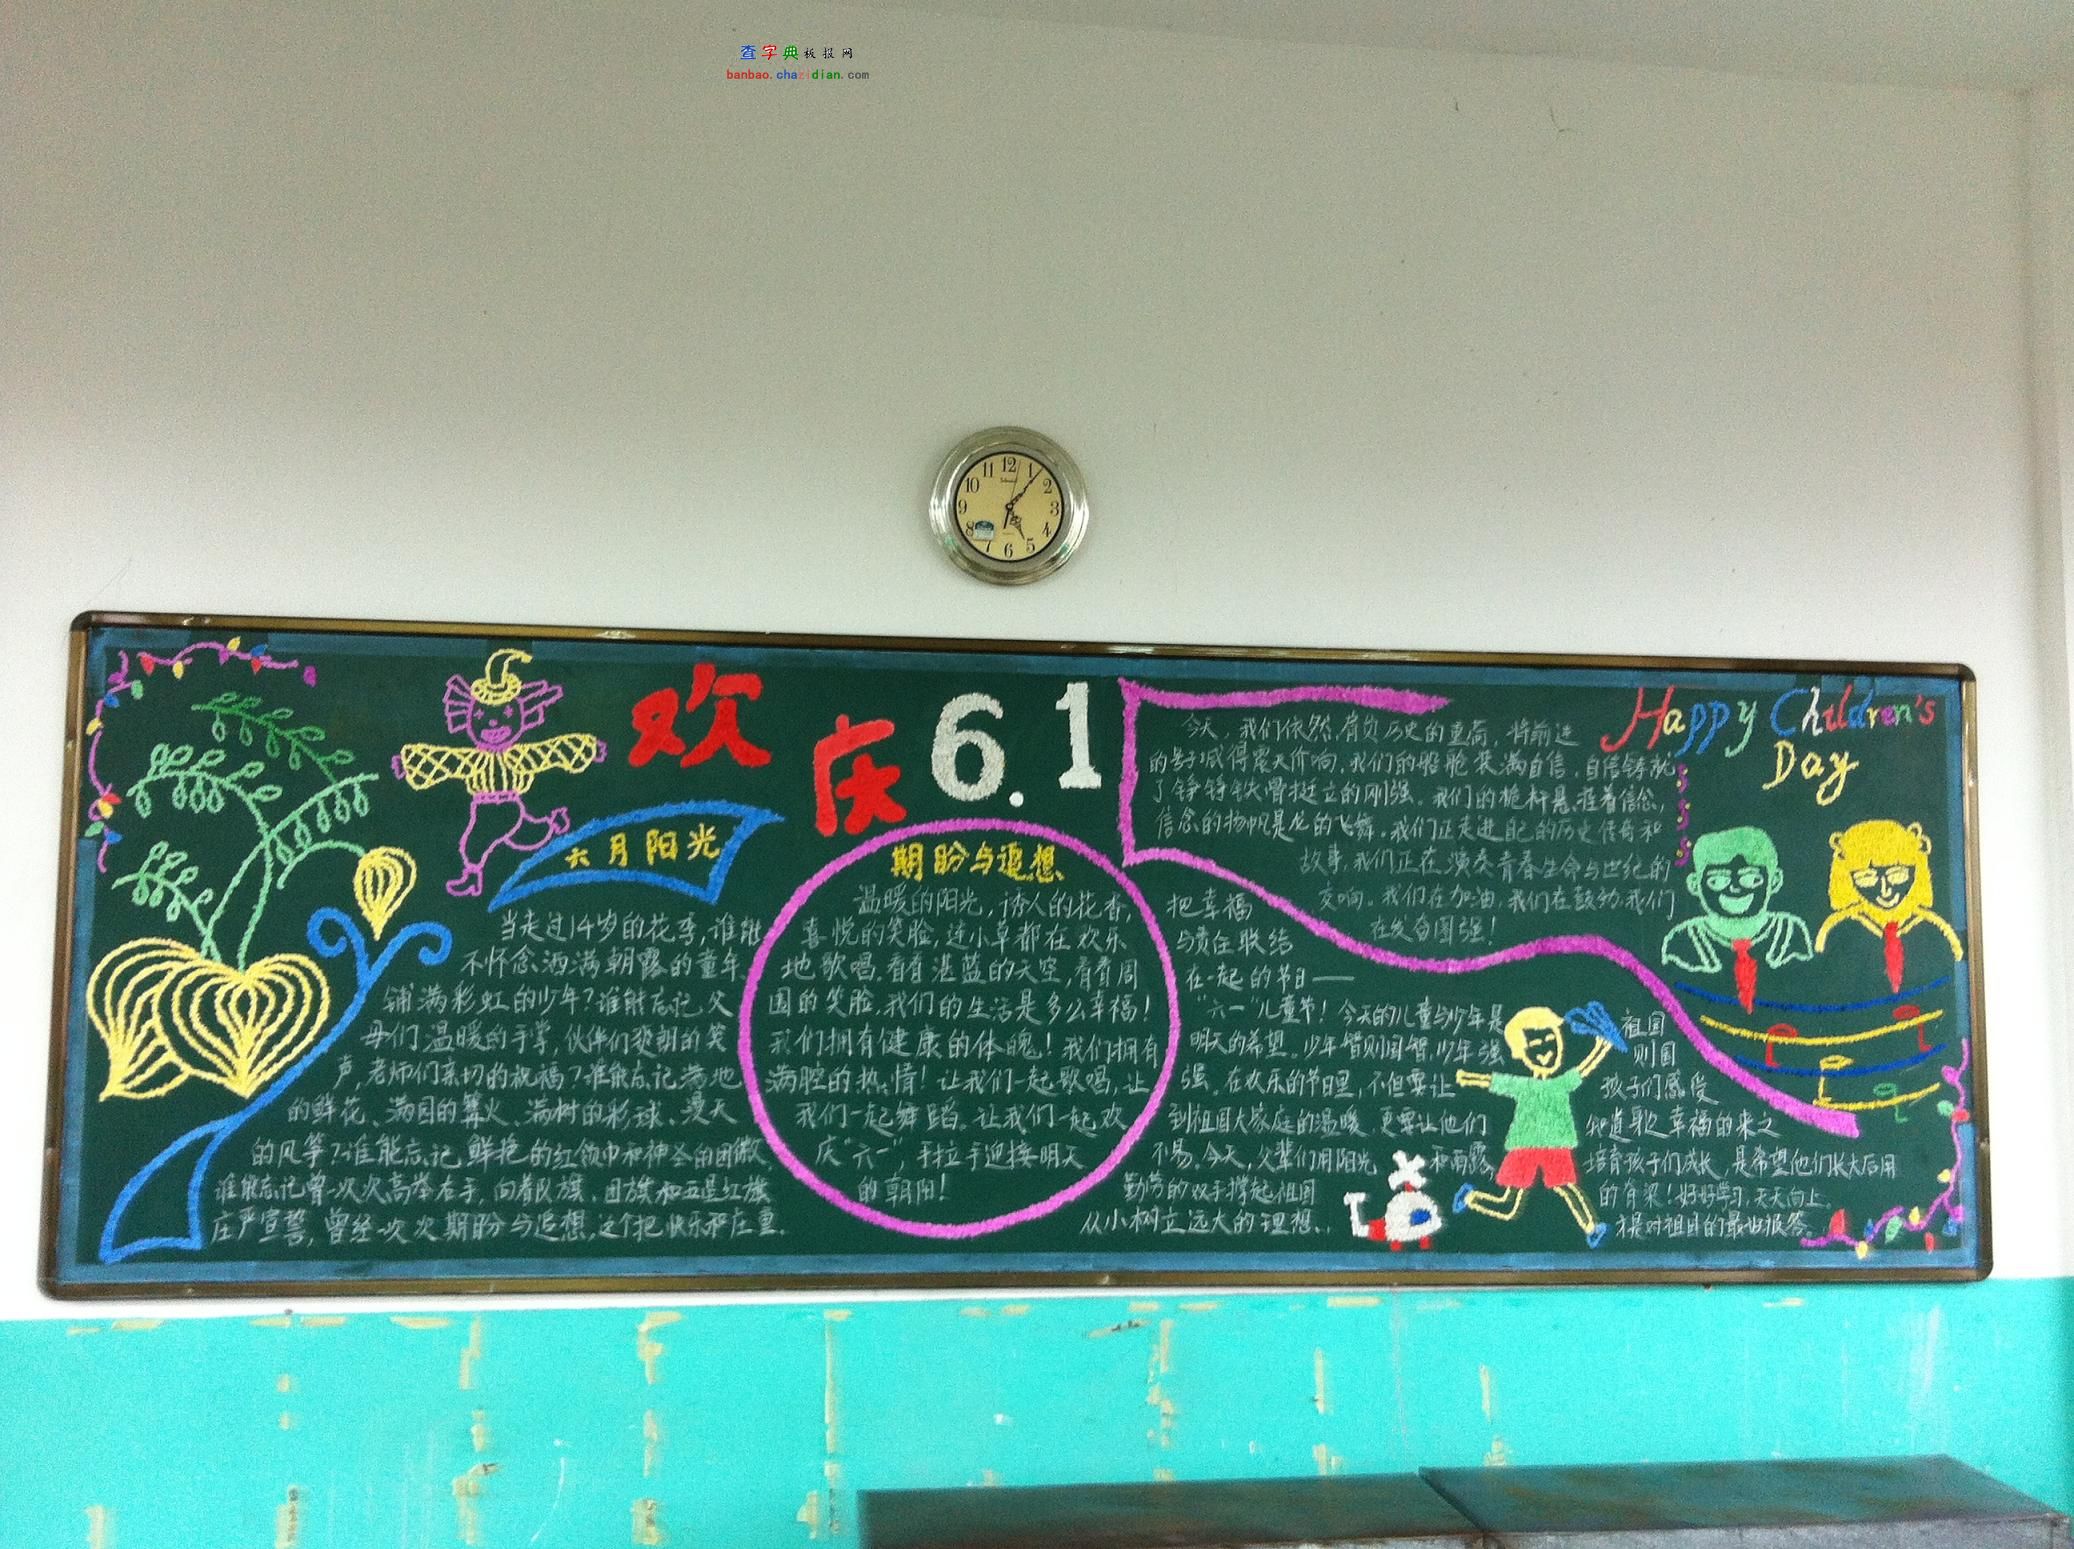 查字典板报网
banbao.chazidian.com
12
11
1
10
2
9
3
8
4
7
5
6
欢庆6.1
六月阳光
当走过14岁的花季,谁能
不怀念洒满朝露的童年,
铺满彩虹的少年?谁能忘记父
母们温暖的手掌,伙伴们爽朗的笑
声,老师们亲切的祝福?谁能忘记满地
的鲜花、满园的篝火、满树的彩球、漫天
的风筝?谁能忘记鲜艳的红领巾和神圣的团徽,
谁能忘记曾一次次高举右手,向着队旗、团旗和五星红旗
庄严宣誓,曾经一次次期盼与追想,这个把快乐和庄重
期盼与追想
温暖的阳光,诱人的花香,
喜悦的笑脸,连小草都在欢乐
地歌唱。看看湛蓝的天空,看看周
围的笑脸,我们的生活是多么幸福!
我们拥有健康的体魄!我们拥有
满腔的热情!让我们一起歌唱,让
我们一起舞蹈。让我们一起欢
庆“六一”,手拉手迎接明天
的朝阳!
今天,我们依然肩负历史的重荷,将前进
的号喊得震天价响,我们的船舱装满自信,自信铸就
了铮铮铁骨挺立的刚强。我们的桅杆悬挂着信念,
信念的扬帆是龙的飞舞。我们正走进自己的历史传奇和
故事,我们正在演奏青春生命与世纪的
交响。我们在加油,我们在鼓劲,我们
在发奋图强!
Happy Children's
Day
把幸福
与责任联结
在一起的节日——
“六一”儿童节!今天的儿童与少年是祖国
明天的希望。少年智则国智,少年强则国
强。在欢乐的节日里,不但要让孩子们感受
到祖国大家庭的温暖,更要让他们知道幸福的来之
不易。今天,父辈们用阳光和雨露培育孩子们成长,是希望他们长大后用
勤劳的双手撑起祖国的脊梁!好好学习,天天向上。
从小树立远大的理想,才是对祖国的最好报答。